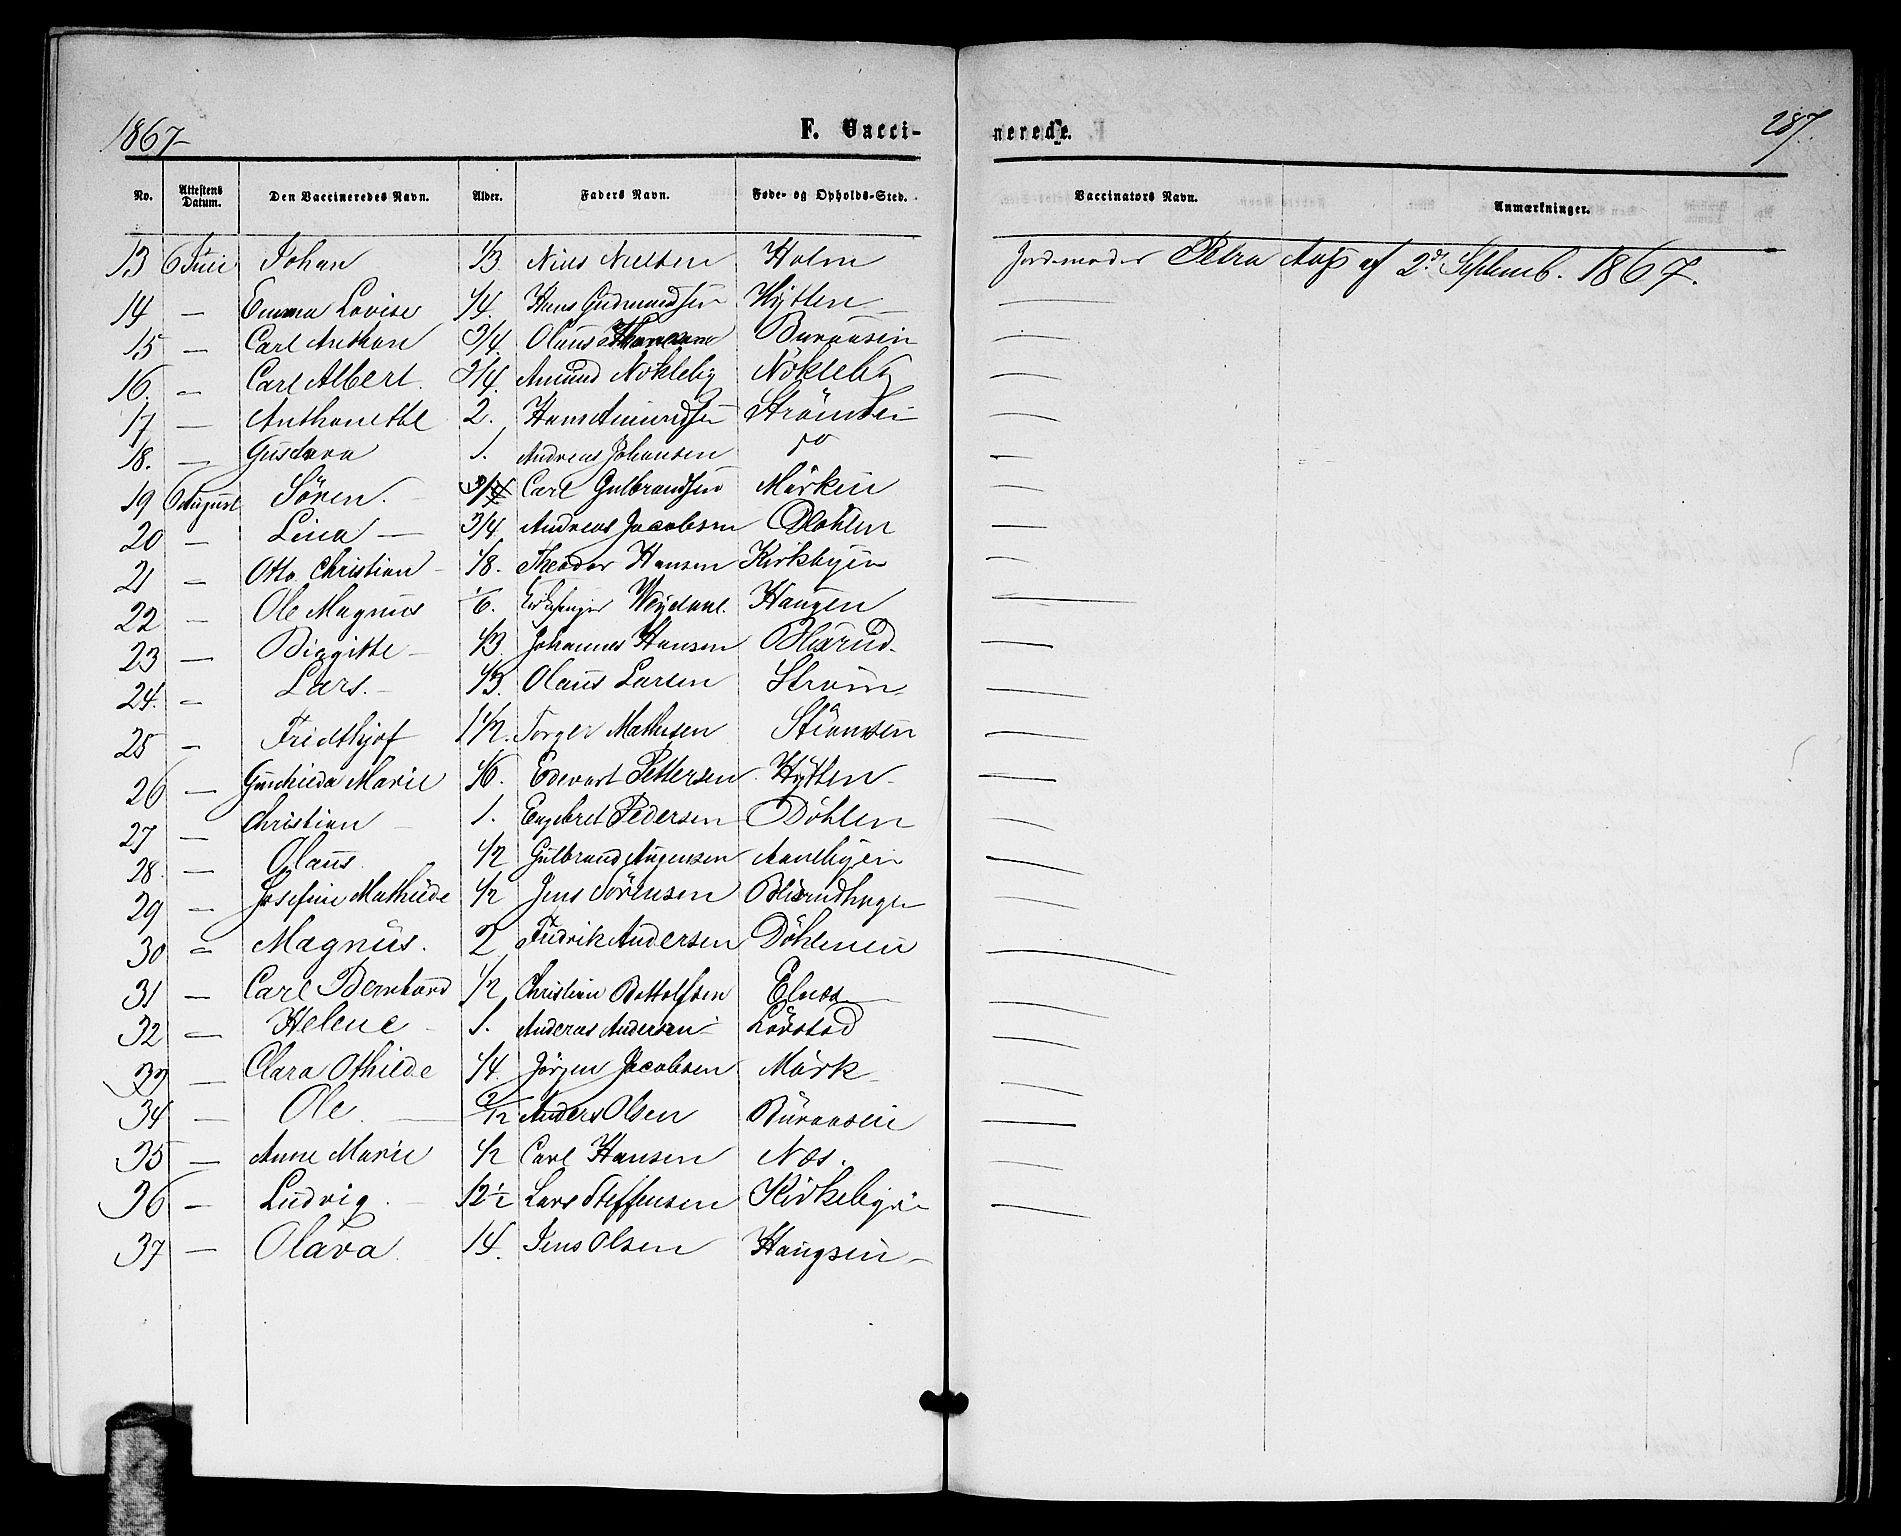 1867
F. Vacci-
nerede.
287.
No.
Attestens Datum.
Den Vaccineredes Navn.
Alder.
Faders Navn.
Føde- og Opholds-Sted.
Vaccinators Navn.
Anmærkninger.
13 6 Juli Johan 1/3 Niels Nielsen Holm Jordemoder Petra Aas af 2den Septemb. 1867.
14 — Emma Lovise 1/4. Hans Gudmundsen Hytten —
15 — Carl Anthon 3/4 Olaus Buraasen —
16. — Carl Albert. 3/4. Amund Nökleby Nökleby —
17 — Anthonette 2. Hans Amundsen —
18. — Gustava 1. Andreas Johansen do —
19 6 August Sören. 3/4 Carl Gulbrandsen Mörken —
20 — Lina — 3/4 Andreas Jacobsen Döhlen —
21 — Otto Christian 1/8. Theodor Hansen Kirkbyen —
22 — Ole Magnus 1/6. Weydahl. Haugen —
23 — Birgitte 1/3. Johannes Hansen Blixrud. —
24. — Lars. 1/3. Olaus Larsen Strøm —
25 — Fridthjof 1 1/2. Torger Mathisen —
26 — Gunhilda Marie 1/6. Edevart Pettersen Hytten —
27 — Christian 1. Engebret Pedersen Döhlen —
28. — Olaus. 1/2 Gulbrand Aanebyen —
29 — Josefine Mathilde 1/2 Jens Sörensen Blixrudhagen —
30 — Magnus. 2 Fredrik Andersen Döhlenen —
31 — Carl Bernhard 1/2 Christian Bottolfsen Elnæs —
32 — Helene 1. Anderas Andersen Lövstad —
33 — Clara Othilde 1/4. Jörgen Jacobsen Mörk —
34 — Ole — Anders Olsen Buraasen —
35 — Anne Marie 1/2 Carl Hansen Næs. —
36 — Ludvig. 12 1/2 Lars Steffensen Kirkebyen —
37 — Olava 14. Jens Olsen Haugsen —